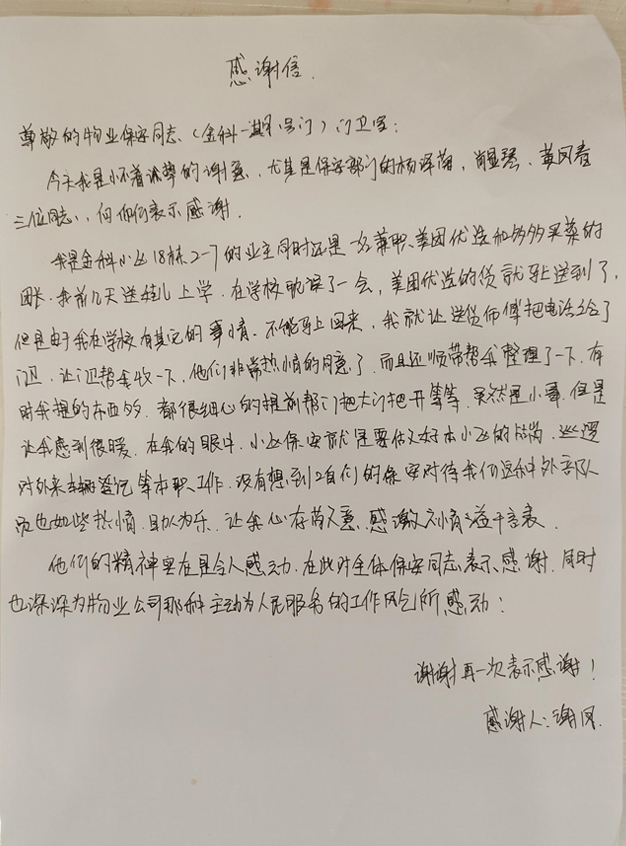 感谢信.
尊敬的物业保安同志、(金科一期号门)门卫室:
今天我是怀着诚挚的谢意、尤其是保安部门的杨泽、肖显强、黄凤春
三位同志、向你们表示感谢.
我是金科小区18栋2-7的业主同时还是一名兼职美团优选和多多买菜的
团长.我前几天送娃儿上学.在学校耽误了一会,美团优选的货就马上送到了,
但是由于我在学校有其它的事情.不能马上回来,我就让送货师傅把电话给了
门卫.让门卫帮我收一下,他们非常热情的同意了.而且还顺带帮我整理了一下.有
时我提的东西多.都很细心的提前帮门把大门把开等等.虽然是小事.但是
让我感到很暖.在我的眼中.小区保安就是要做好本小区的站岗.巡逻
对外来车辆登记等本职工作.没有想到咱们的保安对待我们这种外部队
员也如些热情.助人为乐.让我心存.感激之情溢于言表.
他们的精神实在是令人感动.在此对全体保安同志表示感谢.同时
也深深为物业公司那种主动为人民服务的工作风气所感动:
谢谢再一次表示感谢!
感谢人:谢凤.